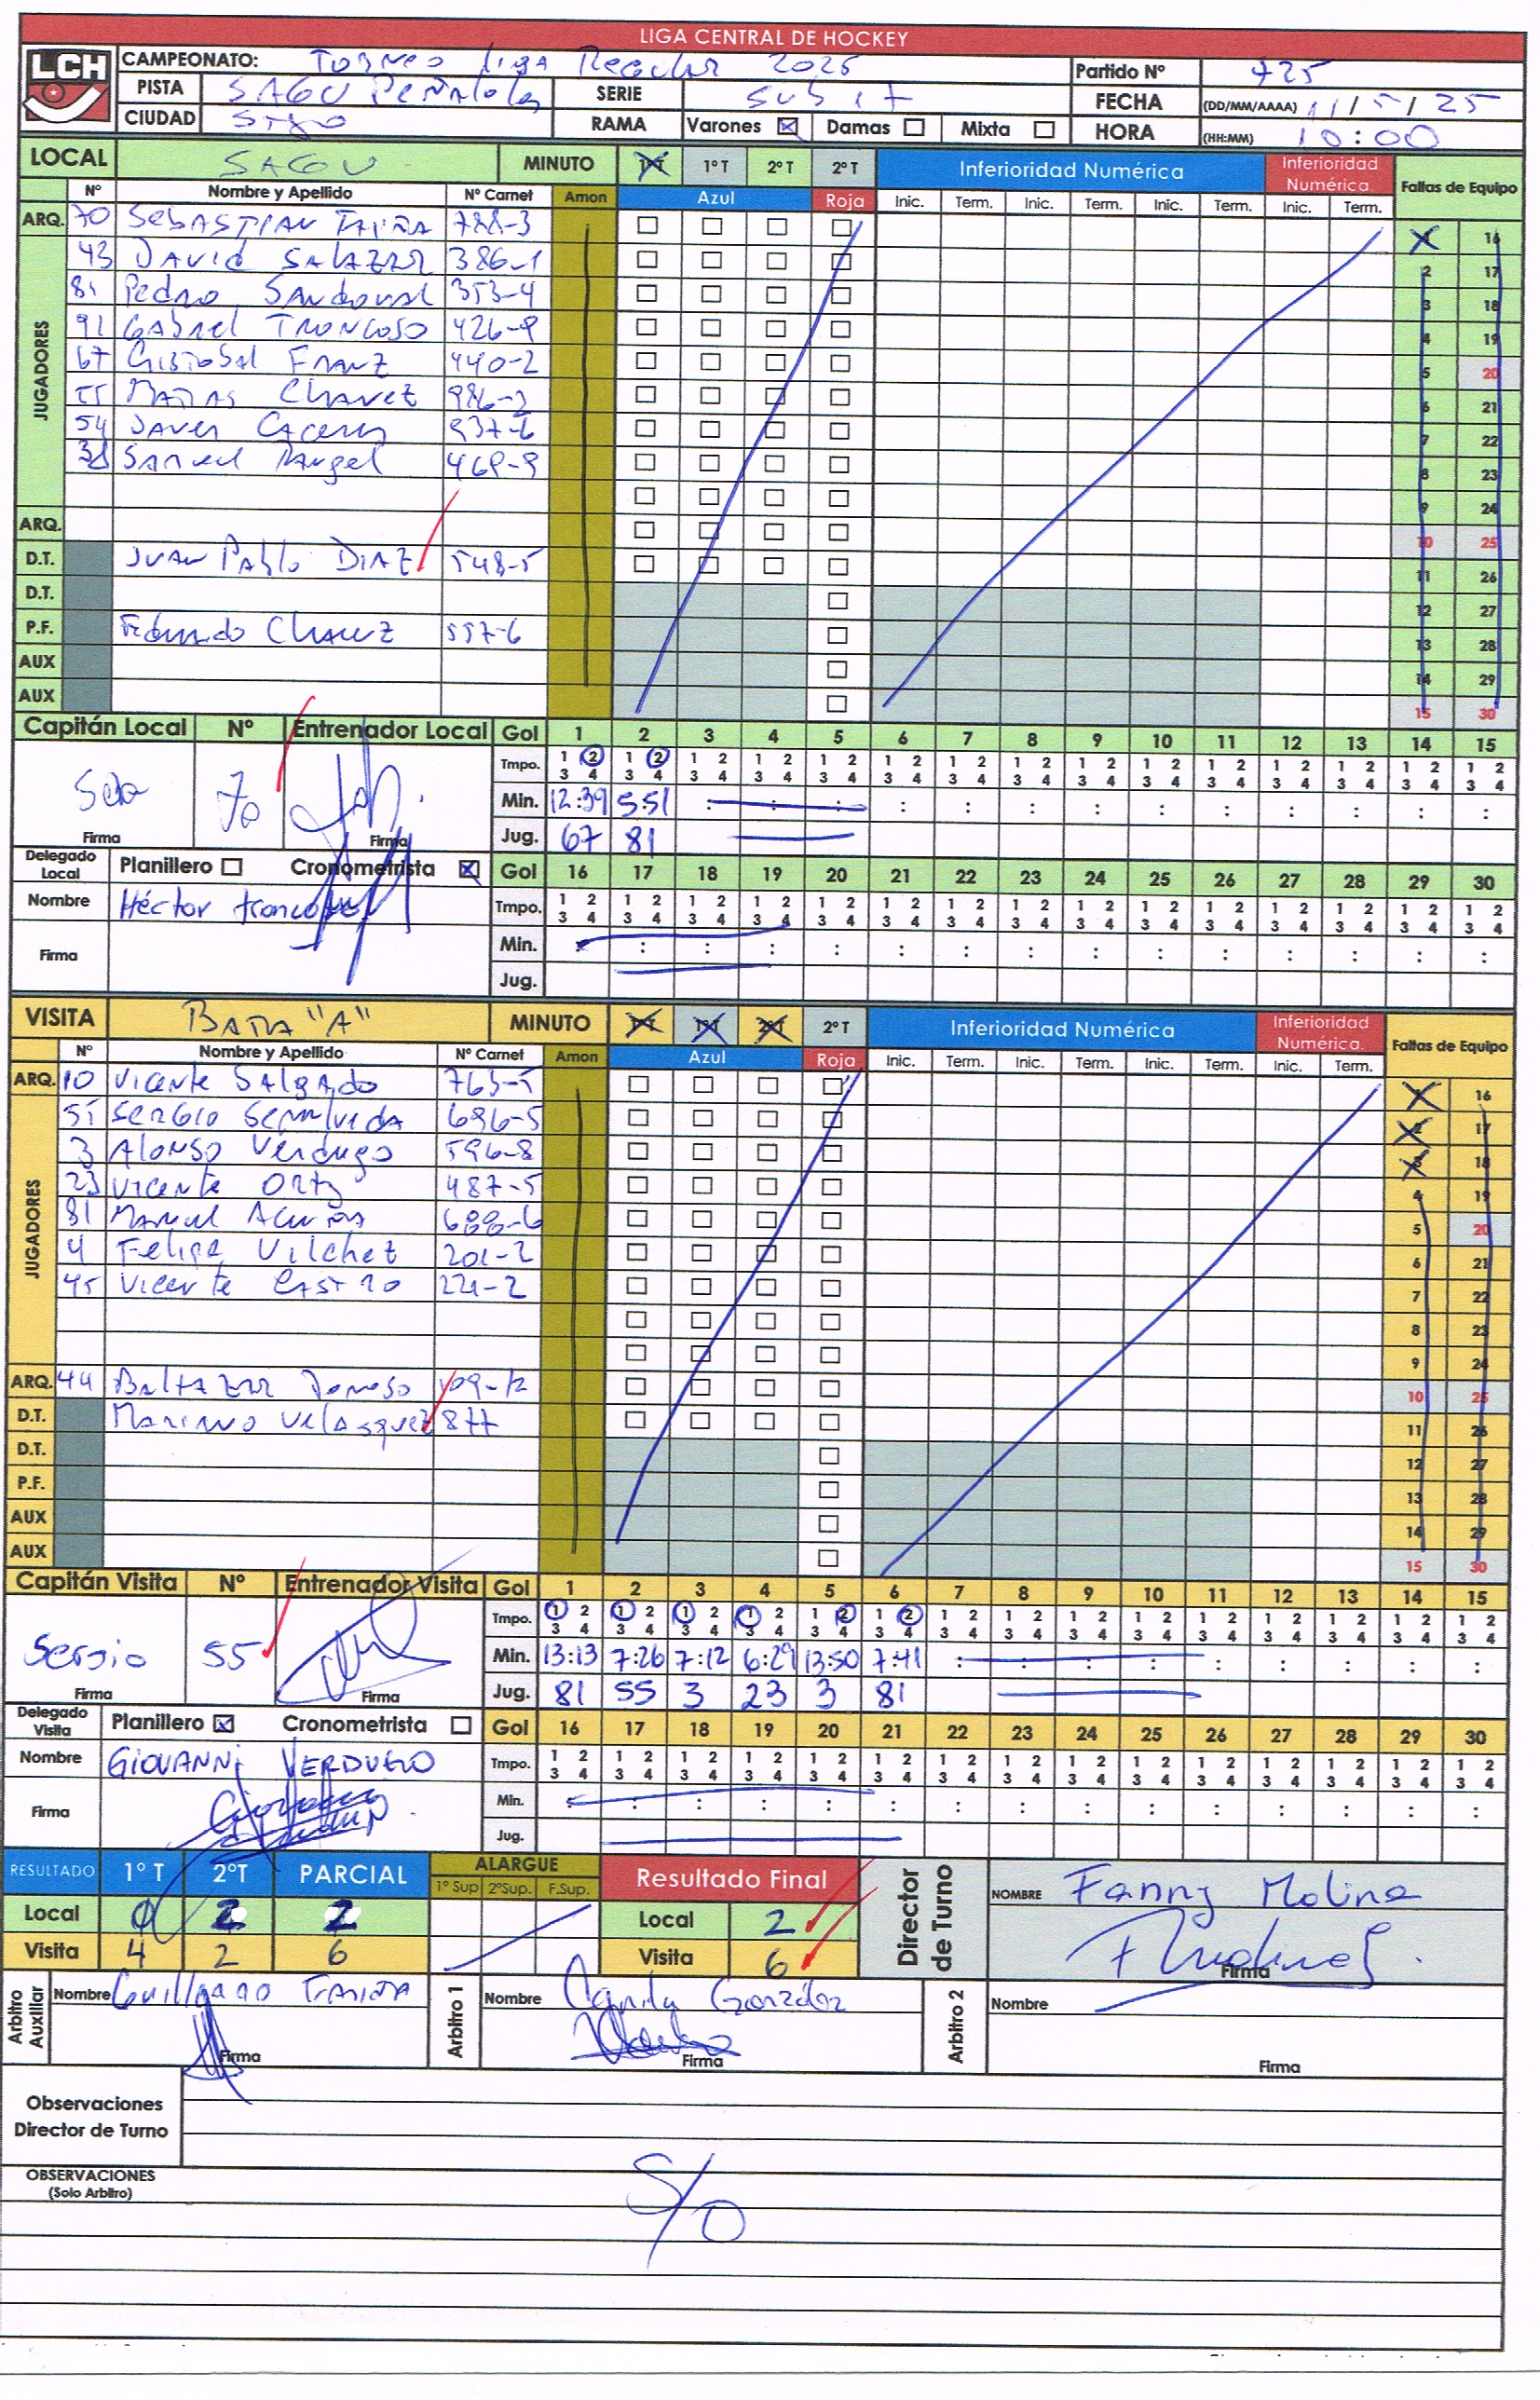 LIGA CENTRAL DE HOCKEY
LCH
CAMPEONATO: Torneo Liga Regular 2025
Partido Nº 725
PISTA SAGU Peñalolen SERIE SUB 17
FECHA (DD/MM/AAAA) 11/5/25
CIUDAD STGO RAMA Varones Damas Mixta
HORA (HH:MM) 10:00
LOCAL SAGU MINUTO 1º T 1º T 2º T 2º T Inferioridad Numérica Inferioridad Numérica Faltas de Equipo
Nº Nombre y Apellido Nº Carnet Amon Azul Roja Inic. Term. Inic. Term. Inic. Term. Inic. Term.
JUGADORES
ARQ. 70 Sebastian 788-3 1 16
43 David Salazar 386-1 2 17
81 Pedro Sandoval 353-4 3 18
91 Gabriel Troncoso 426-9 4 19
67 Cristobal Franz 440-2 5 20
55 Matias Chavez 986-2 6 21
54 Javier Caceres 937-6 7 22
38 Samuel Rangel 469-9 8 23
9 24
ARQ. 10 25
D.T. Juan Pablo Diaz 548-5 11 26
D.T. 12 27
P.F. Eduardo Chavez 557-6 13 28
AUX 14 29
AUX 15 30
Capitán Local Nº Entrenador Local Gol 1 2 3 4 5 6 7 8 9 10 11 12 13 14 15
Tmpo. 1 2 1 2 1 2 1 2 1 2 1 2 1 2 1 2 1 2 1 2 1 2 1 2 1 2 1 2 1 2
3 4 3 4 3 4 3 4 3 4 3 4 3 4 3 4 3 4 3 4 3 4 3 4 3 4 3 4 3 4
Seba 70 Min. 12:39 5:51 : : : : : : : : : : : : :
Firma Firma Jug. 67 81
Delegado Local Planillero Cronometrista Gol 16 17 18 19 20 21 22 23 24 25 26 27 28 29 30
Nombre Héctor Troncoso Tmpo. 1 2 1 2 1 2 1 2 1 2 1 2 1 2 1 2 1 2 1 2 1 2 1 2 1 2 1 2 1 2
3 4 3 4 3 4 3 4 3 4 3 4 3 4 3 4 3 4 3 4 3 4 3 4 3 4 3 4 3 4
Firma Min. : : : : : : : : : : : : : : :
Jug.
VISITA BATA "A" MINUTO 1º T 1º T 2º T 2º T Inferioridad Numérica Inferioridad Numérica. Faltas de Equipo
Nº Nombre y Apellido Nº Carnet Amon Azul Roja Inic. Term. Inic. Term. Inic. Term. Inic. Term.
JUGADORES
ARQ. 10 Vicente Salgado 763-5 1 16
55 Sergio Sepulveda 686-5 2 17
3 Alonso Verdugo 596-8 3 18
23 Vicente Ortiz 487-5 4 19
81 Manuel Acuña 688-6 5 20
4 Felipe Vilchez 201-2 6 21
45 Vicente Castro 221-2 7 22
8 23
9 24
ARQ. 44 Baltazar Donoso 109-K 10 25
D.T. Mariano Velasquez 877 11 26
D.T. 12 27
P.F. 13 28
AUX 14 29
AUX 15 30
Capitán Visita Nº Entrenador Visita Gol 1 2 3 4 5 6 7 8 9 10 11 12 13 14 15
Tmpo. 1 2 1 2 1 2 1 2 1 2 1 2 1 2 1 2 1 2 1 2 1 2 1 2 1 2 1 2 1 2
3 4 3 4 3 4 3 4 3 4 3 4 3 4 3 4 3 4 3 4 3 4 3 4 3 4 3 4 3 4
Sergio 55 Min. 13:13 7:26 7:12 6:29 13:50 7:41 : : : : : : : : :
Firma Firma Jug. 81 55 3 23 3 81
Delegado Visita Planillero Cronometrista Gol 16 17 18 19 20 21 22 23 24 25 26 27 28 29 30
Nombre GIOVANNI VERDUGO Tmpo. 1 2 1 2 1 2 1 2 1 2 1 2 1 2 1 2 1 2 1 2 1 2 1 2 1 2 1 2 1 2
3 4 3 4 3 4 3 4 3 4 3 4 3 4 3 4 3 4 3 4 3 4 3 4 3 4 3 4 3 4
Firma Min. : : : : : : : : : : : : : : :
Jug.
RESULTADO 1º T 2ºT PARCIAL ALARGUE Resultado Final Director de Turno NOMBRE Fanny Molina
1º Sup 2ºSup. F.Sup.
Local 0 2 2 Local 2
Visita 4 2 6 Visita 6
Firma
Arbitro Auxiliar Nombre Guillermo Arbitro 1 Nombre Camila González Arbitro 2 Nombre
Firma Firma Firma
Observaciones
Director de Turno
OBSERVACIONES
(Solo Arbitro)
S/O